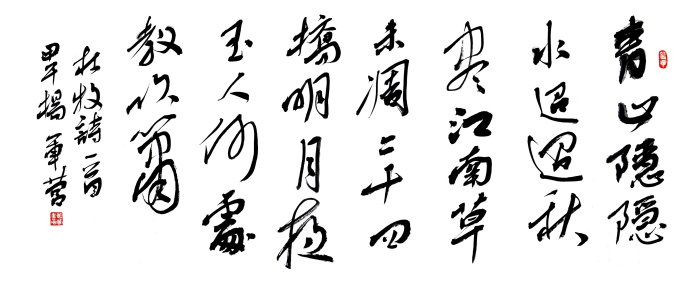 青山隱隱
水迢迢秋
尽江南草
未凋二十四
橋明月夜
玉人何處
教吹簫
杜牧詩一首
甲午楊軍